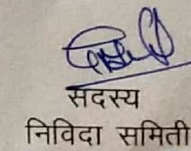 सदस्य
निविदा समिती